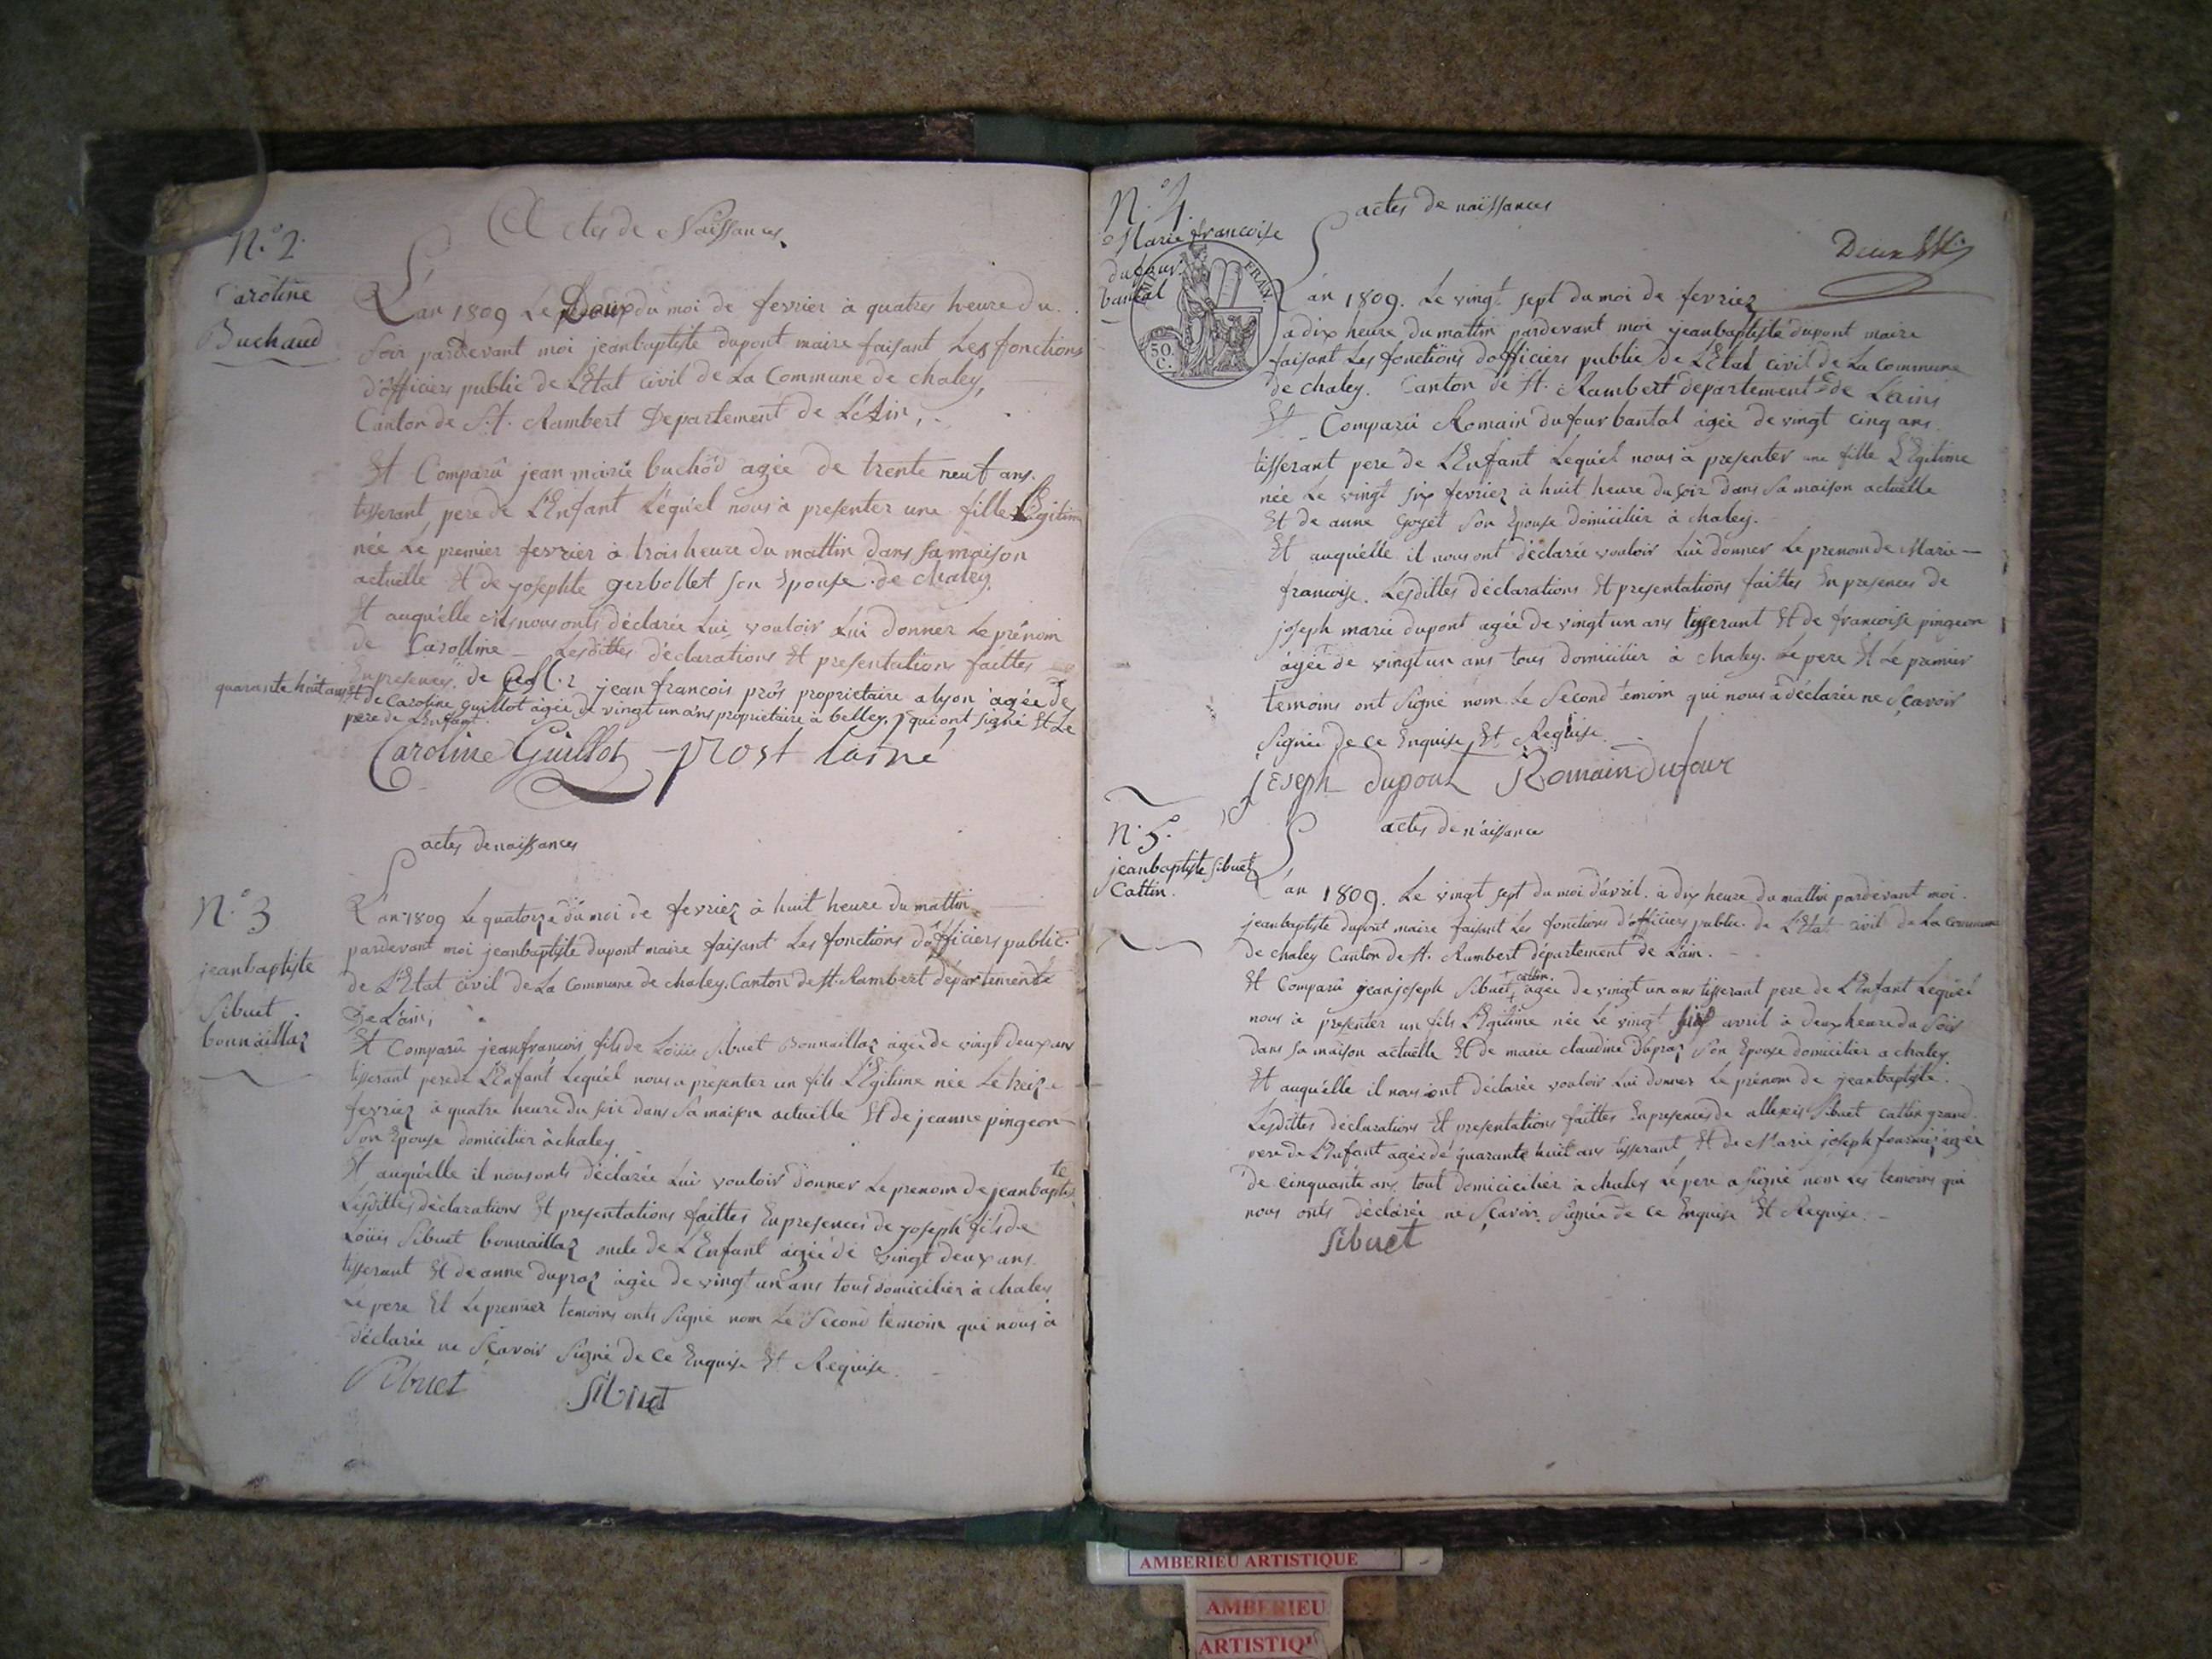 Actes de Naissances
N.° 2
Caroline
Buchaud
L'an 1809 Le Deux du moi de fevrier à quatres heure du
Soir pardevant moi jeanbaptiste dupont maire faisant Les fonctions
d'officiers public de L'Etat civil de La Commune de chaley,
Canton de St. Rambert Departement de L'Ain,
Et Comparû jean marie buchod agée de trente neuf ans.
tisserant, pere de L'Enfant Lequel nous à presenter une fille Légitime
née Le premier fevrier à trois heure du mattin dans sa maison
actuelle Et de josephte gerbollet son Epouse de chaley.
Et auquélle ils nous onts déclarée Lui vouloir Lui donner Le prénom
de Carolline – Lesdittes déclarations Et presentations faittes
En presences de jean francois pros propriétaire a lyon agée de
quarante huit ans Et de Caroline guillot agée de vingt un ans propriétaire à belley. qui ont signé Et Le
pere de L'Enfant.
Caroline Guillot prost lainé
actes de naissances
N.° 3
jeanbaptiste
Sibuet
bonnaillaz
L'an 1809 Le quatorze du moi de fevriez à huit heure du mattin
pardevant moi jeanbaptiste dupont maire faisant Les fonctions d'officiers public
de L'Etat civil de La Commune de chaley. Canton de St. Rambert département de
De L'ain,
Et Comparû jeanfrancois fils de Loüis Sibuet Bonnaillaz agée de vingt deux ans
tisserant pere de L'Enfant Lequél nous a présenter un fils L'Egitime née Le treize
fevriez à quatre heure du soir dans Sa maison actuelle Et de jeanne pingeon
Son Epouse domicilier à chaley
Et auquélle il nous onts déclarée Lui vouloir donner Le prenom de jeanbaptiste
Lesdittes déclarations Et presentations faittes En presences de joseph fils de
Loüis Sibuet bonnaillaz oncle de L'Enfant agée de vingt deux ans.
tisserant Et de anne dupraz agée de vingt un ans tous domicilier à chaley
Le pere Et Le premier temoins onts Signé nom Le Second temoin qui nous à
déclarée ne Sçavoir Signé de ce Enquise Et Requise.
Sibuet Sibuet
N.° 4.
Marie francoise
dufour
bantal
actes de naissances
FRAN.
50.
C.
L'an 1809. Le vingt sept du moi de fevriez
a dix heure du mattin pardevant moi jeanbaptiste dupont maire
faisant Les fonctions d'officiers public de L'Etat civil de La Commune
de chaley. Canton de St. Rambert departement de L'ains
Et Comparû Romain dufour bantal agée de vingt cinq ans
tisserant pere de L'Enfant Lequél nous à presenter une fille L'Egitime
née Le vingt six fevriez à huit heure du soir dans Sa maison actuelle
Et de anne goyet Son Epouse domicilier à chaley.
Et auquélle il nous ont déclarée vouloir Lui donner Le prenom de Marie –
francoise. Lesdittes déclarations Et presentations faittes En presences de
joseph marie dupont agée de vingt un ans tisserant Et de francoise pingeon
âgée de vingt un ans tous domicilier à chaley. Le pere Et Le premier
temoins ont Signé nom Le Second temoin qui nous à déclarée ne Sçavoir
Signée de ce Enquise Et Requise.
Joseph dupont Romain dufour
N.° 5.
jeanbaptiste Sibuet
Cattin.
actes de naissances
L'an 1809. Le vingt sept du moi d'avril. à dix heure du mattin pardevant moi
jeanbaptiste dupont maire faisant Les fonctions d'officiers public de L'Etat civil de La Commune
de chaley Canton de St. Rambert département de L'ain.
cattin.
Et Comparû jeanjoseph Sibuet agée de vingt un ans tisserant pere de L'Enfant Lequél
nous à presenter un fils L'Egitime née Le vingt avril à deux heure du Soir
dans Sa maison actuelle Et de marie claudine dupraz Son Epouse domicilier a chaley
Et auquélle il nous ont déclarée vouloir Lui donner Le prénom de jeanbaptiste.
Lesdittes déclarations Et presentations faittes En presences de allexis Sibuet cattin grand
pere de L'Enfant agée de quarante huit ans tisserant Et de Marie joseph fournier agée
de cinquante ans tout domicicilier à chaley Le pere a signé nom Les temoins qui
nous onts déclarée ne Sçavoir Signée de ce Enquise Et Requise. –
Sibuet
AMBERIEU ARTISTIQUE
AMBERIEU
ARTISTIQU